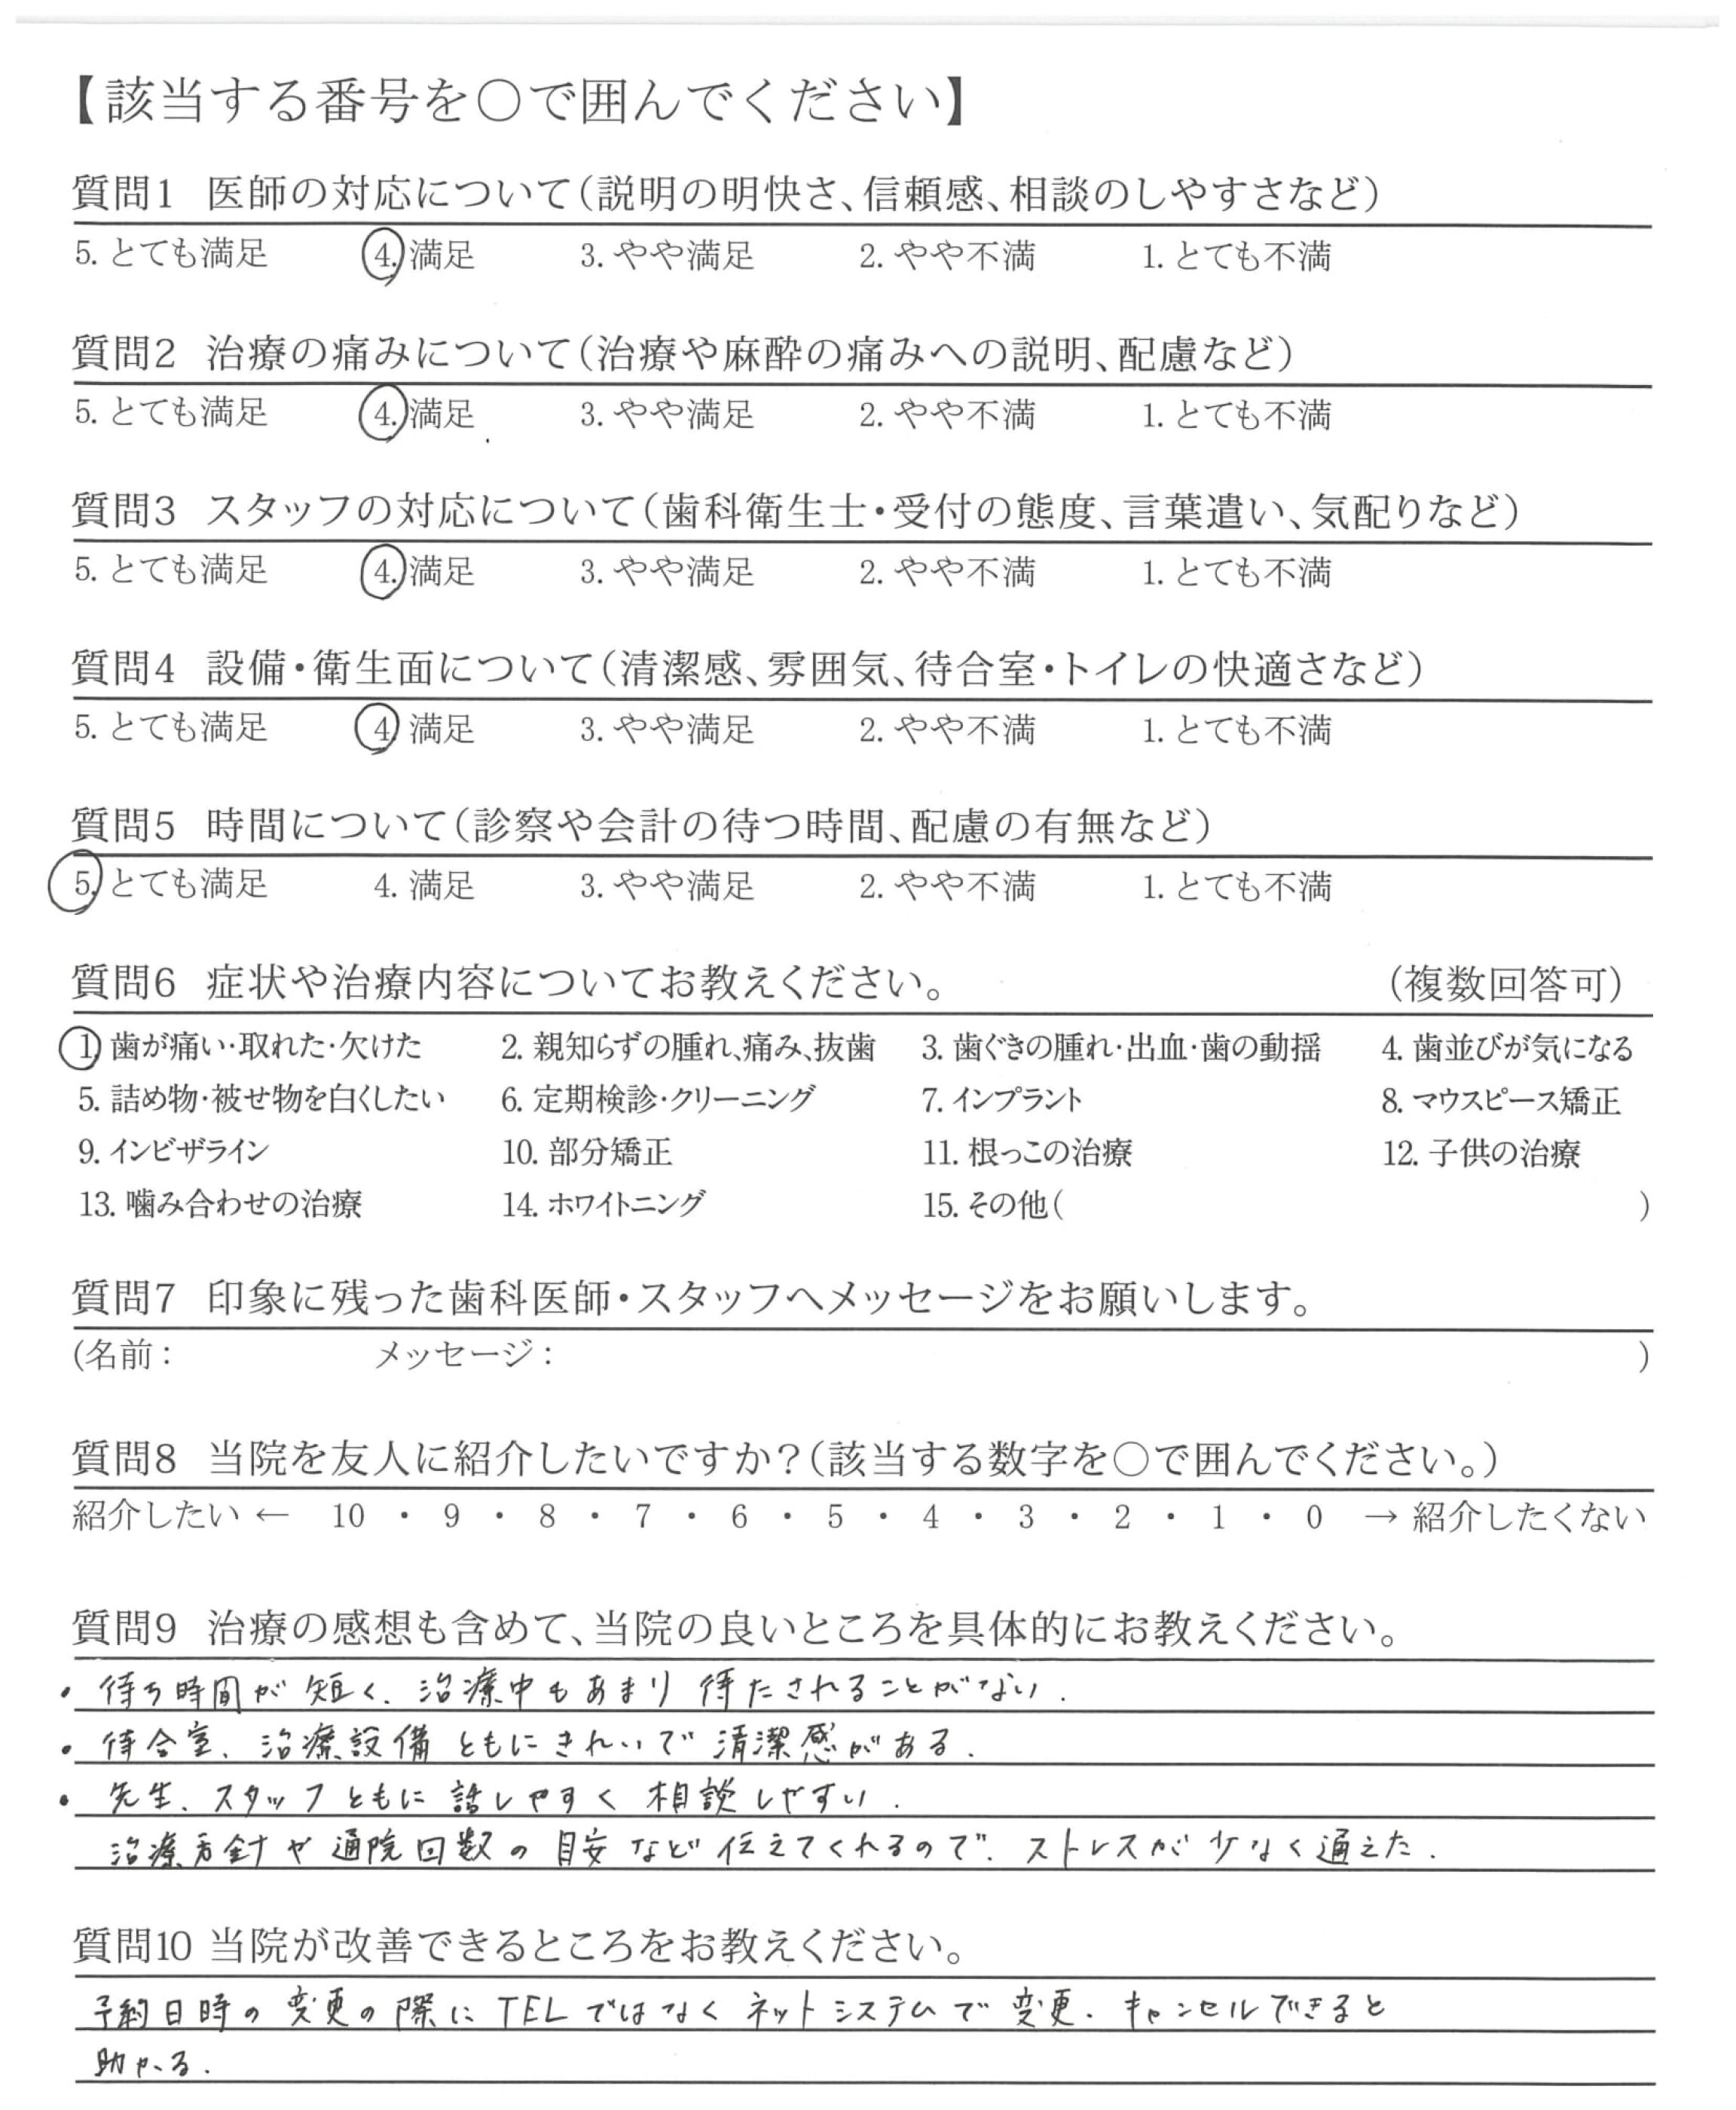 【該当する番号を○で囲んでください】
質問1 医師の対応について(説明の明快さ、信頼感、相談のしやすさなど)
5. とても満足 4. 満足 3. やや満足 2. やや不満 1. とても不満
質問2 治療の痛みについて(治療や麻酔の痛みへの説明、配慮など)
5. とても満足 4. 満足 3. やや満足 2. やや不満 1. とても不満
質問3 スタッフの対応について(歯科衛生士・受付の態度、言葉遣い、気配りなど)
5. とても満足 4. 満足 3. やや満足 2. やや不満 1. とても不満
質問4 設備・衛生面について(清潔感、雰囲気、待合室・トイレの快適さなど)
5. とても満足 4. 満足 3. やや満足 2. やや不満 1. とても不満
質問5 時間について(診察や会計の待つ時間、配慮の有無など)
5. とても満足 4. 満足 3. やや満足 2. やや不満 1. とても不満
質問6 症状や治療内容についてお教えください。 (複数回答可)
1. 歯が痛い・取れた・欠けた 2. 親知らずの腫れ、痛み、抜歯 3. 歯ぐきの腫れ・出血・歯の動揺 4. 歯並びが気になる
5. 詰め物・被せ物を白くしたい 6. 定期検診・クリーニング 7. インプラント 8. マウスピース矯正
9. インビザライン 10. 部分矯正 11. 根っこの治療 12. 子供の治療
13. 噛み合わせの治療 14. ホワイトニング 15. その他( )
質問7 印象に残った歯科医師・スタッフへメッセージをお願いします。
(名前: メッセージ: )
質問8 当院を友人に紹介したいですか?(該当する数字を○で囲んでください。)
紹介したい ← 10 ・ 9 ・ 8 ・ 7 ・ 6 ・ 5 ・ 4 ・ 3 ・ 2 ・ 1 ・ 0 → 紹介したくない
質問9 治療の感想も含めて、当院の良いところを具体的にお教えください。
・待ち時間が短く、治療中もあまり待たされることがない.
・待合室、治療設備ともにきれいで清潔感がある.
・先生、スタッフともに話しやすく相談しやすい.
治療方針や通院回数の目安など伝えてくれるので、ストレスが少なく通えた.
質問10 当院が改善できるところをお教えください。
予約日時の変更の際にTELではなくネットシステムで変更、キャンセルできると
助かる.